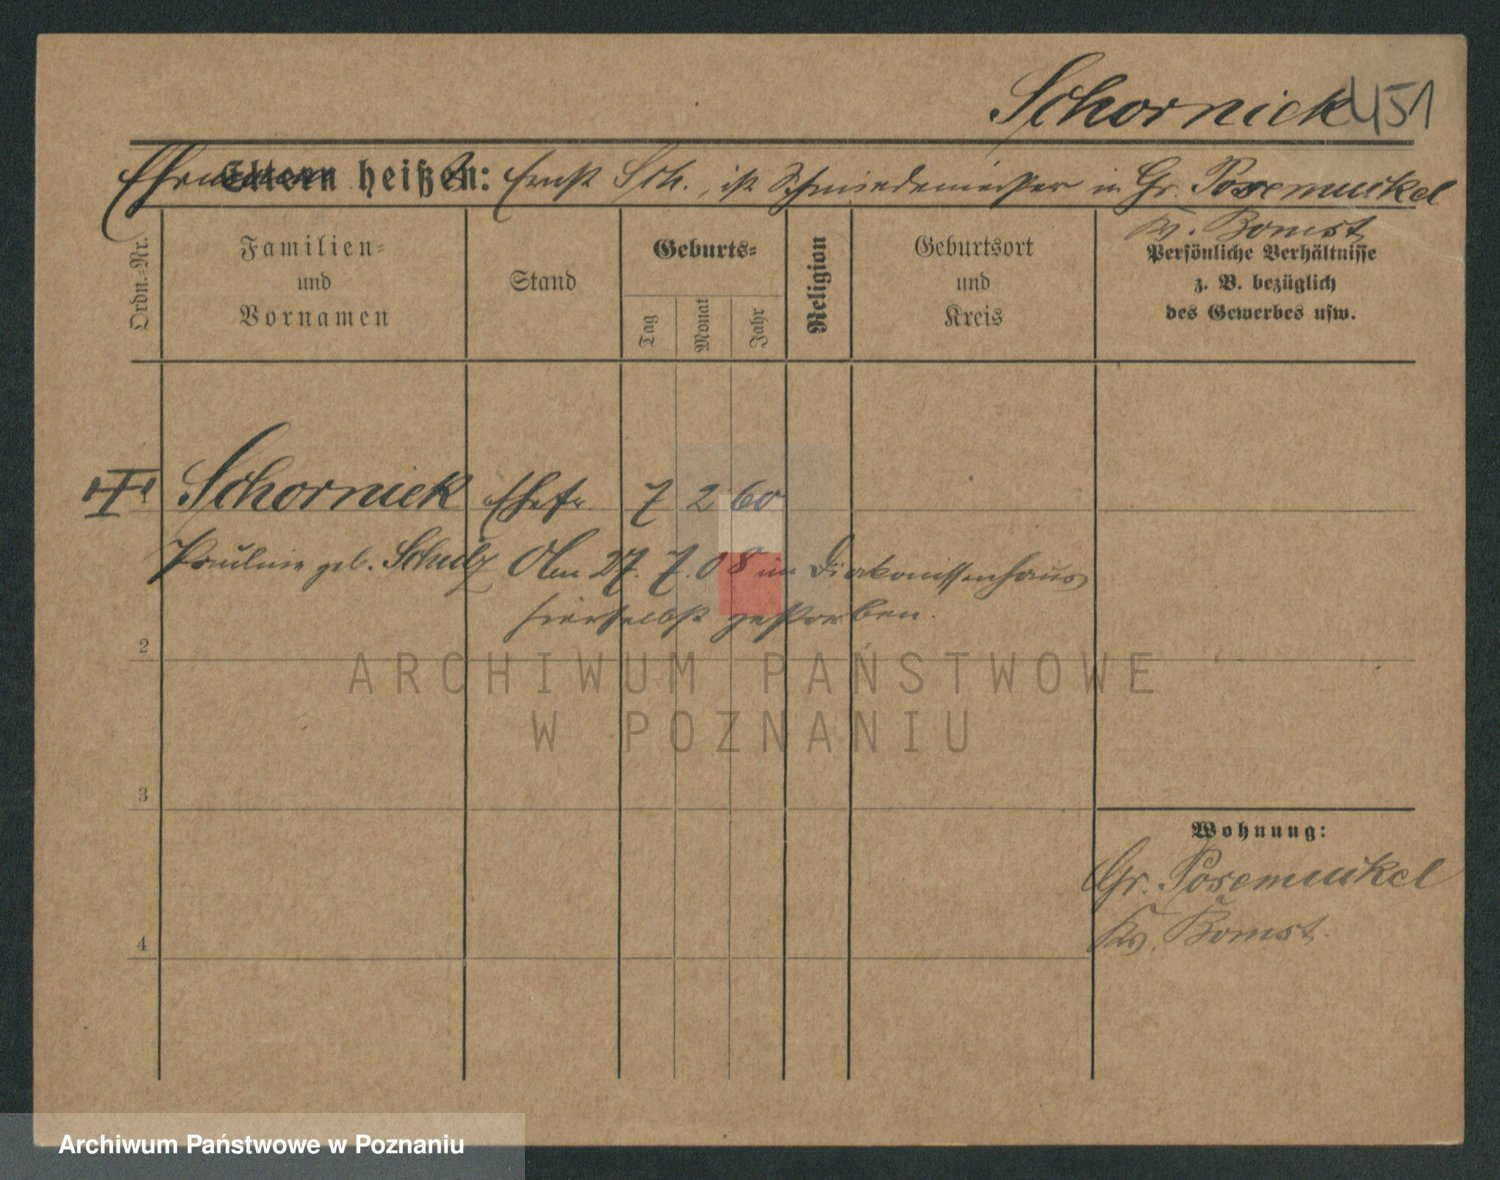 Schornick 451
Ehemann heißt: Ernst Sch., ist Schmiedemeister in Gr. Posemuckel
Kr. Bomst
Ordn.-Nr.
Familien-
und
Vornamen
Stand
Geburts-
Tag
Monat
Jahr
Religion
Geburtsort
und
Kreis
Persönliche Verhältnisse
z. B. bezüglich
des Gewerbes usw.
Schornick Ehefr. 7 2 60
Pauline geb. Schulz Am 27. 7. 08 im Diakonissenhaus
hierselbst gestorben.
2
ARCHIWUM PAŃSTWOWE
W POZNANIU
3
Wohnung:
Gr. Posemuckel
Kr. Bomst.
4
Archiwum Państwowe w Poznaniu